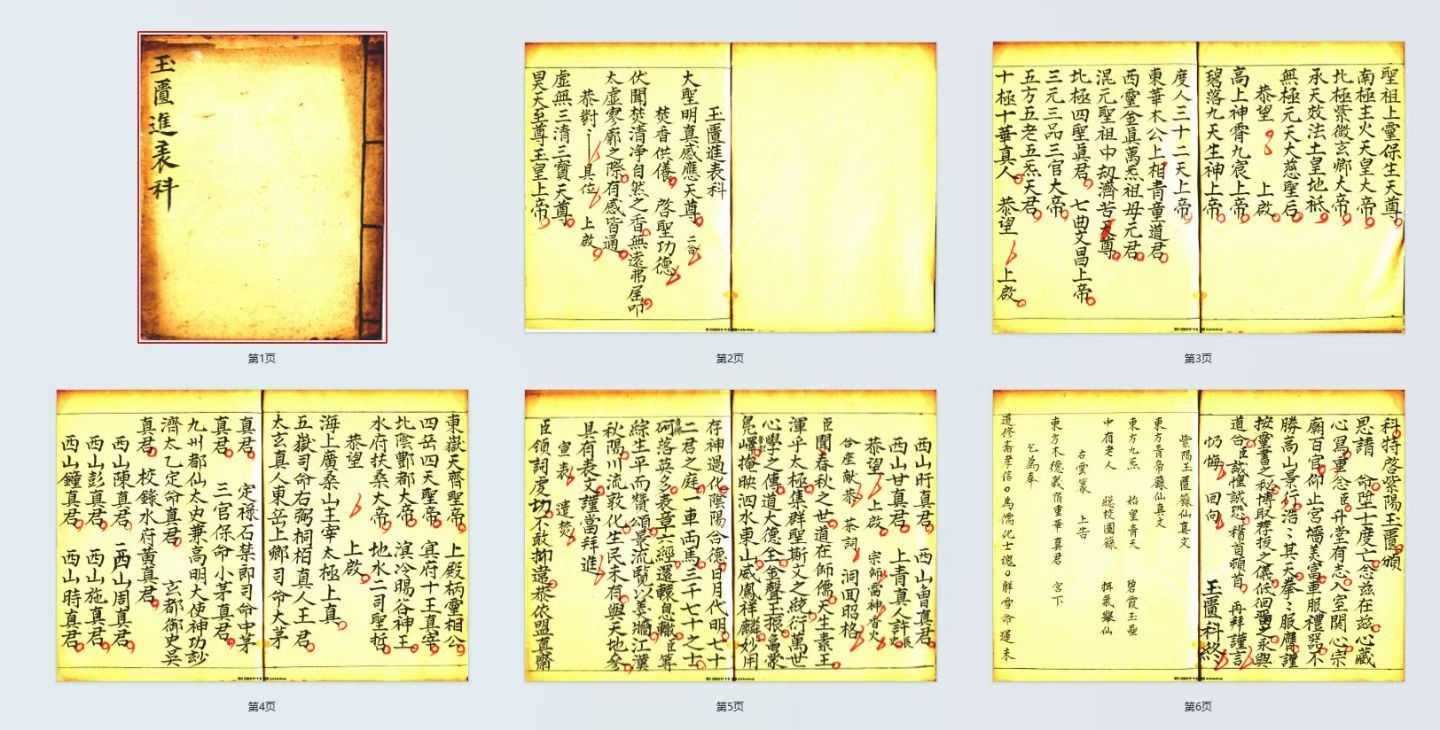 玉匱進表科
第1页
玉匱進表科
大聖明真感應天尊 二合
焚香供儀 啓聖功德
伏聞焚清淨自然之香無遠弗屆叩
太虛寥廓之際有感皆通
恭對 具位 上啟
虛無三清三寶天尊
昊天至尊玉皇上帝
第2页
聖祖上靈保生天尊
南極主火天皇大帝
北極紫微玄卿大帝
承天效法土皇地祇
無極元天大慈聖后
恭望 上啟
高上神霄九宸上帝
碧落九天生神上帝
度人三十二天上帝
東華木公上相青童道君
西靈金真萬炁祖母元君
混元聖祖中刼濟苦天尊
北極四聖真君 七曲文昌上帝
三元三品三官大帝
五方五老五炁天君
十極十華真人 恭望 上啟
第3页
東嶽天齊聖帝 上殿柄靈相公
四岳四天聖帝 寘府十王真宰
北陰酆都大帝 溟泠暘谷神王
水府扶桑大帝 地水二司聖哲
恭望 上啟
海上廣桑山主宰太極上真
五嶽司命右弼桐柏真人王君
太玄真人東岳上卿司命大茅
真君 定祿右禁郎司命中茅
真君 三官保命小茅真君
九州都仙太史兼高明大使神功妙
濟太乙定命真君 玄都御史吳
真君 校錄水府黃真君
西山陳真君 西山周真君
西山彭真君 西山施真君
西山鐘真君 西山時真君
第4页
西山旴真君 西山曾真君
西山甘真君 上青真人許 張
恭望 上啟 宗師雷神香火
合座献茶 茶詞 洞回昭格
臣聞春秋之世道在師儒天生素王
渾乎太極集群聖斯文之統衍萬世
心學之傳道大德全金聲玉振龜蒙
鳧嶧掩映泗水東山威鳳祥麟妙用
存神過化陰陽合德日月代明七十
二君之庭一車両馬三千七十之士
綜生平而贊頌景流覽以羹牆江漢
秋陽川流敦化生民未有與天地參
具有表文謹當拜進
宣表 遣焚
臣領詞虔切不敢抑違
第5页
科特啓紫陽玉匱頒
恩請 命陞士度亡念兹在兹心藏
心寫重念臣升堂有志入室関心宗
廟百官仰止宮牆美富車服禮器不
勝高山景行浩浩其天拳拳服膺謹
道合臣誠惶誠恐稽首頓首 再拜謹言
仍悔 回向 玉匱科終
紫陽玉匱籙仙真文
東方青帝籙仙真文
東方九炁 始皇青天 碧霞玉壘
中有老人 総校圖籙 攝氣舉仙
右雲篆 上告
東方木德歲宿重華真君 宮下
乞為奉
第6页